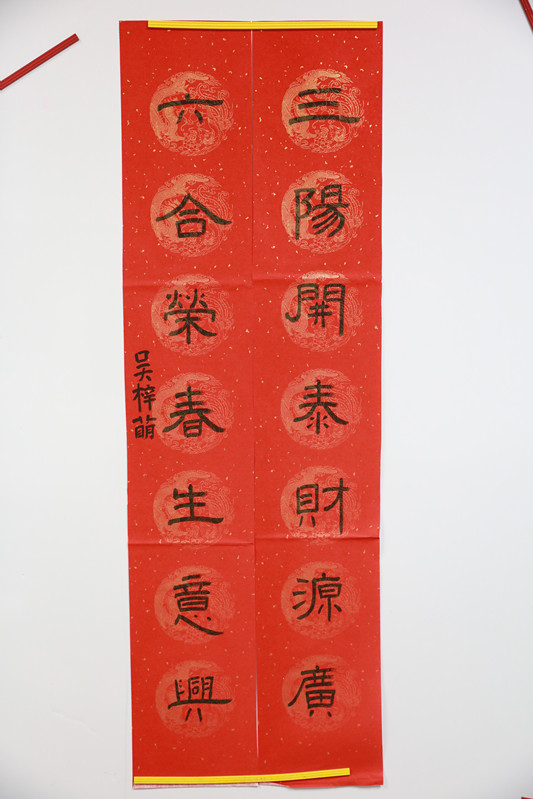 三陽開泰財源廣
六合榮春生意興
吴梓萌